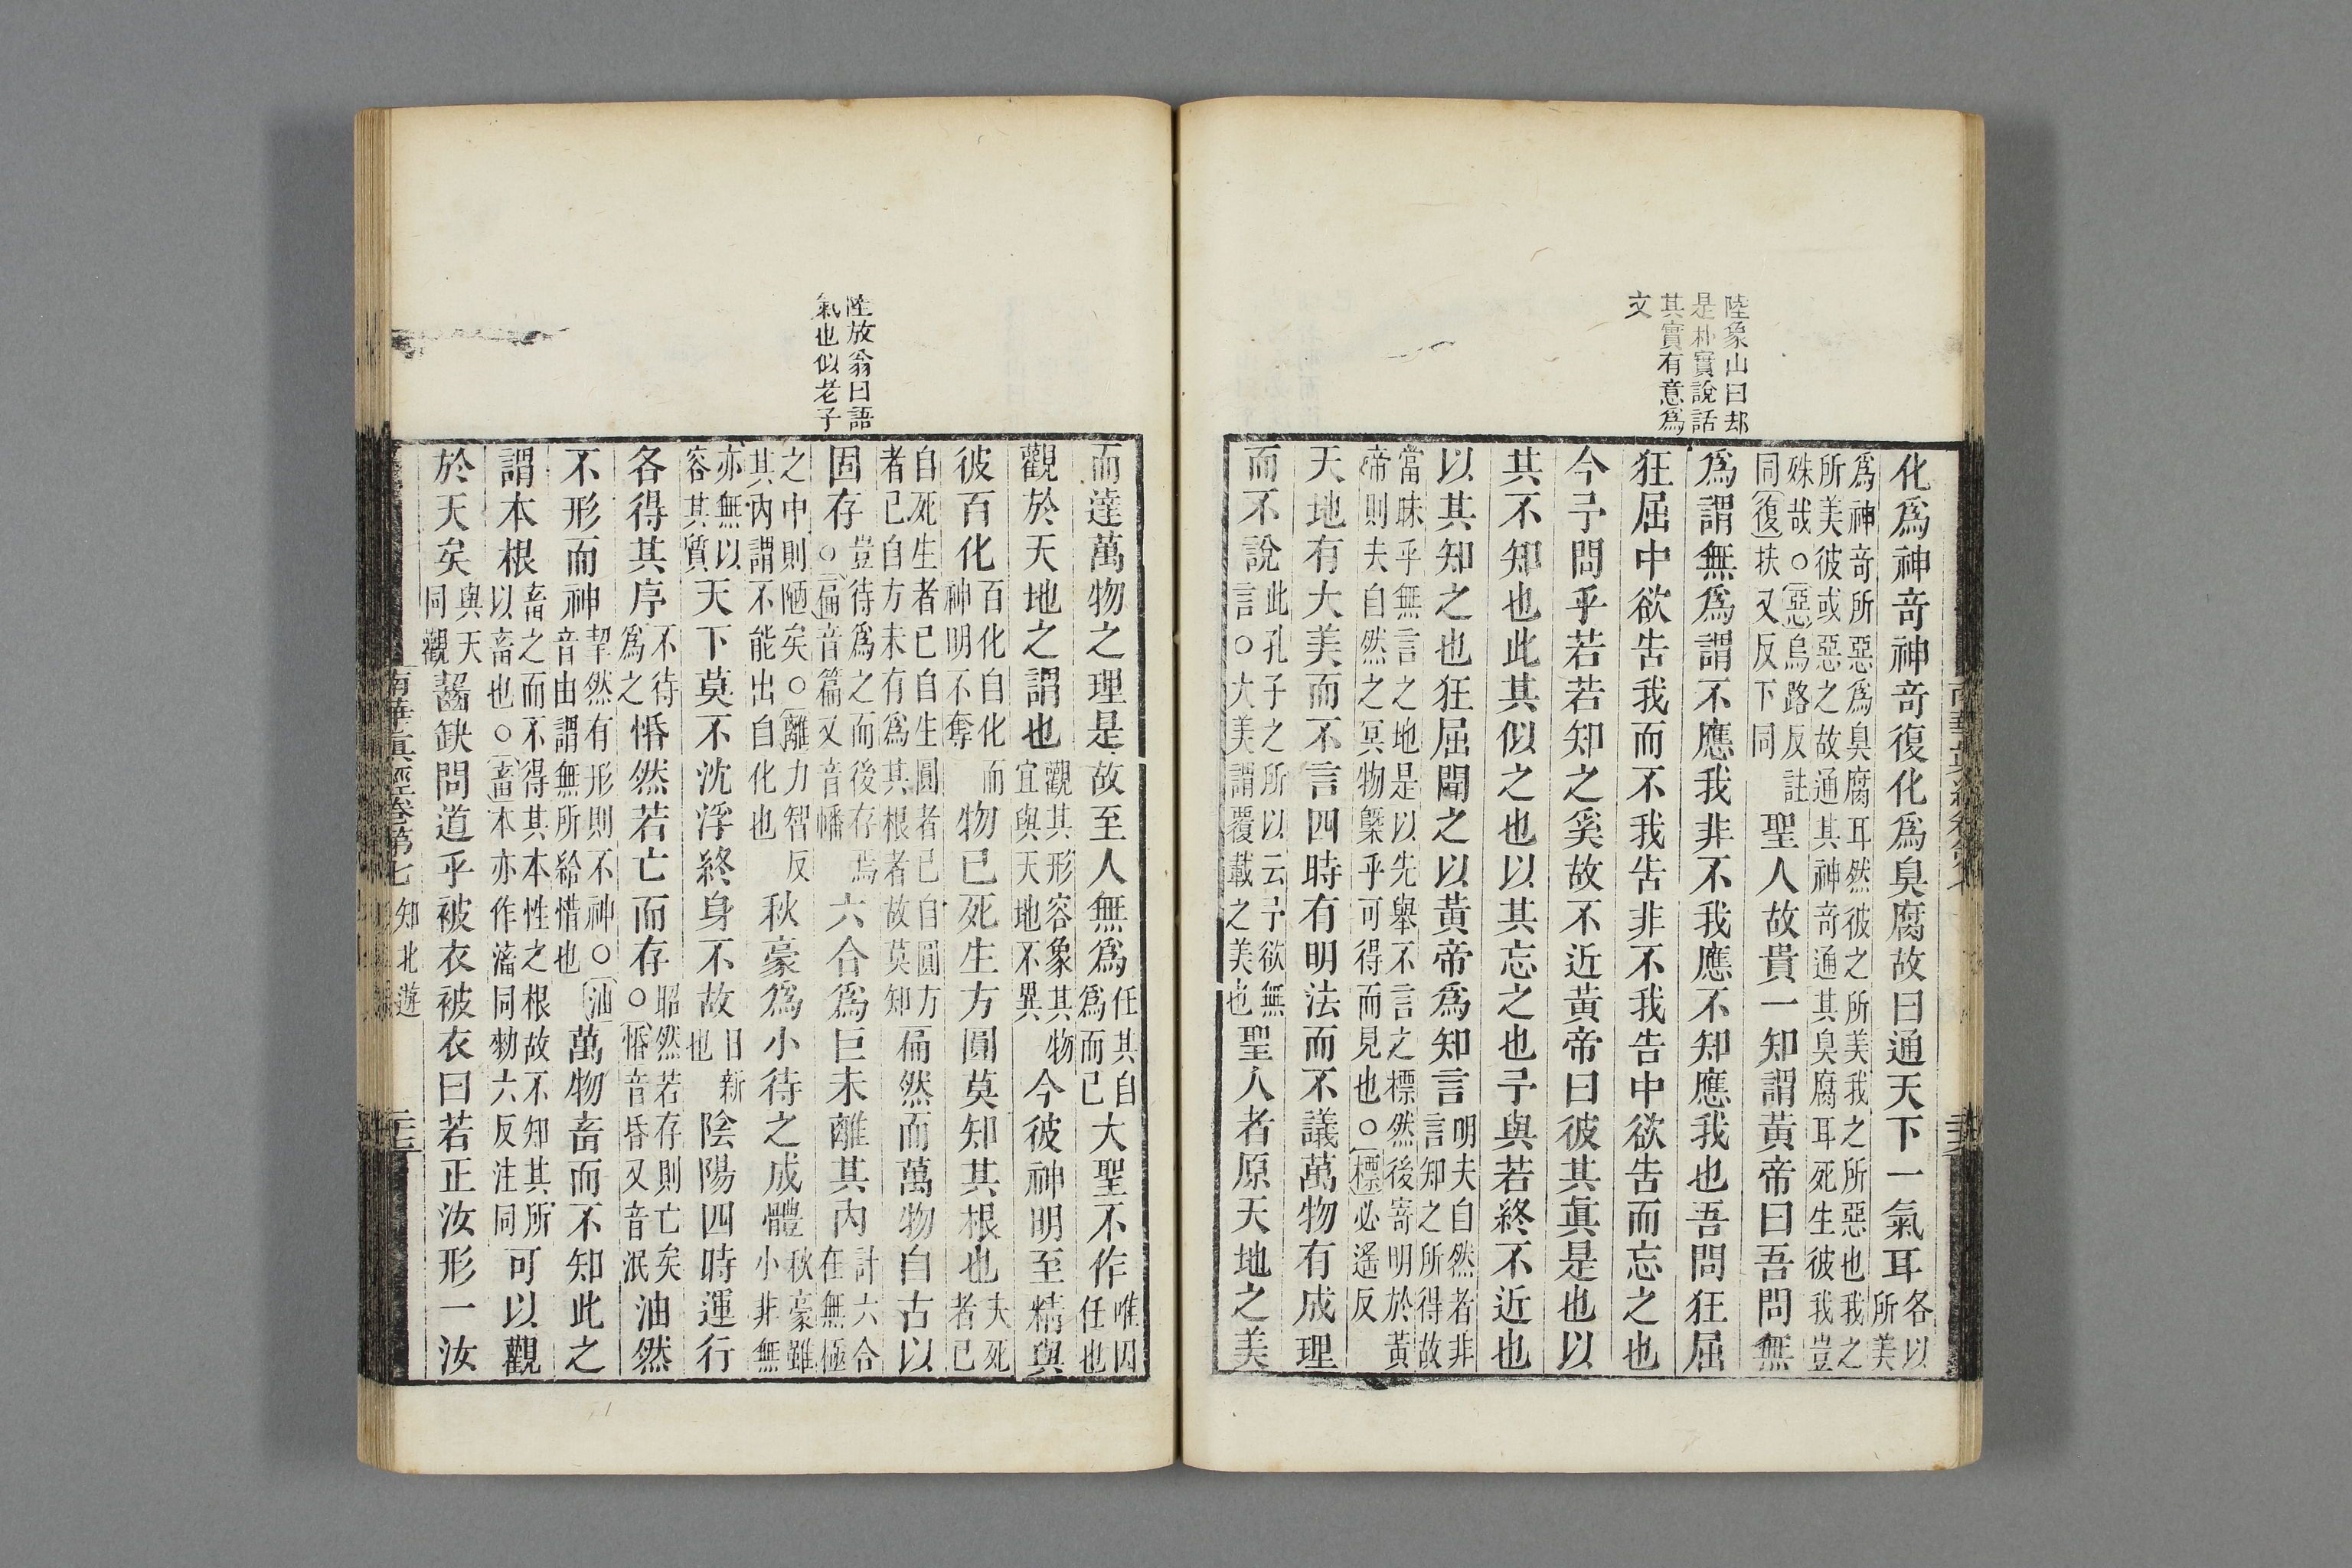 陸象山曰却
是朴實說話
其實有意爲
文
化爲神奇神奇復化爲臭腐故曰通天下一氣耳各以所美
爲神奇所惡爲臭腐耳然彼之所美我之所惡也我之
所美彼或惡之故通其神奇通其臭腐耳死生彼我豈
殊哉○惡烏路反註
同復扶又反下同
聖人故貴一知謂黃帝曰吾問無
爲謂無爲謂不應我非不我應不知應我也吾問狂屈
狂屈中欲告我而不我告非不我告中欲告而忘之也
今予問乎若若知之奚故不近黃帝曰彼其眞是也以
其不知也此其似之也以其忘之也予與若終不近也
以其知之也狂屈聞之以黃帝爲知言明夫自然者非言知之所得故
當昧乎無言之地是以先舉不言之標然後寄明於黃
帝則夫自然之冥物槩乎可得而見也○標必遙反
天地有大美而不言四時有明法而不議萬物有成理
而不說此孔子之所以云予欲無言○大美謂覆載之美也聖人者原天地之美
陸放翁曰語
氣也似老子
而達萬物之理是故至人無爲任其自爲而已大聖不作唯因任也
觀於天地之謂也觀其形容象其物宜與天地不異今彼神明至精與
彼百化百化自化而神明不奪物已死生方圓莫知其根也夫死者已
自死生者已自生圓者已自圓方
者已自方未有爲其根者故莫知
扁然而萬物自古以
固存豈待爲之而後存焉○扁音篇又音幡六合爲巨未離其內計六合在無極
之中則陋矣○離力智反
其內謂不能出自化也
秋豪爲小待之成體秋豪雖小非無
亦無以
容其質
天下莫不沈浮終身不故日新也陰陽四時運行
各得其序不待爲之惛然若亡而存昭然若存則亡矣○惛音昏又音泯油然
不形而神挈然有形則不神○油音由謂無所給惜也萬物畜而不知此之
謂本根畜之而不得其本性之根故不知其所以畜也○畜本亦作滀同勑六反注同可以觀
於天矣與天同觀齧缺問道乎被衣被衣曰若正汝形一汝
南華眞經卷第七 知北遊